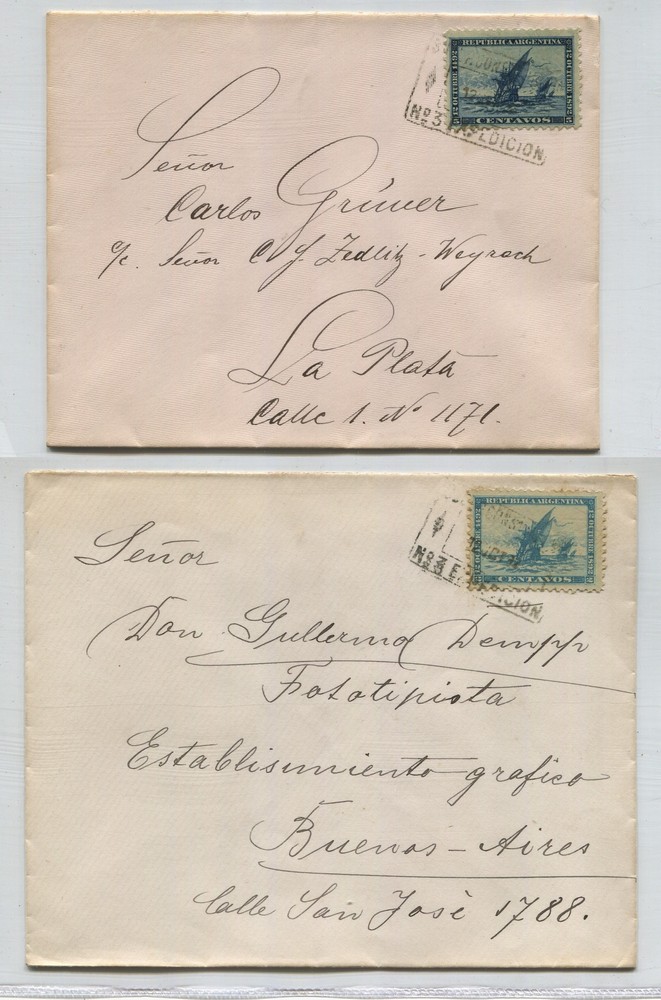 REPUBLICA ARGENTINA
12 OCTUBRE 1492
12 OCTUBRE 1892
5 CENTAVOS 5
Nº3 EXPEDICION
Señor
Carlos Grüwer
c/c. Señor C. J. Zedlitz - Weyrach
La Plata
Calle 1. Nº 1171.
REPUBLICA ARGENTINA
12 OCTUBRE 1492
12 OCTUBRE 1892
2 CENTAVOS 2
Nº3 EXPEDICION
Señor
Don Gullermo Dempp
Fototipista
Establisimiento grafico
Buenos - Aires
Calle San José 1788.